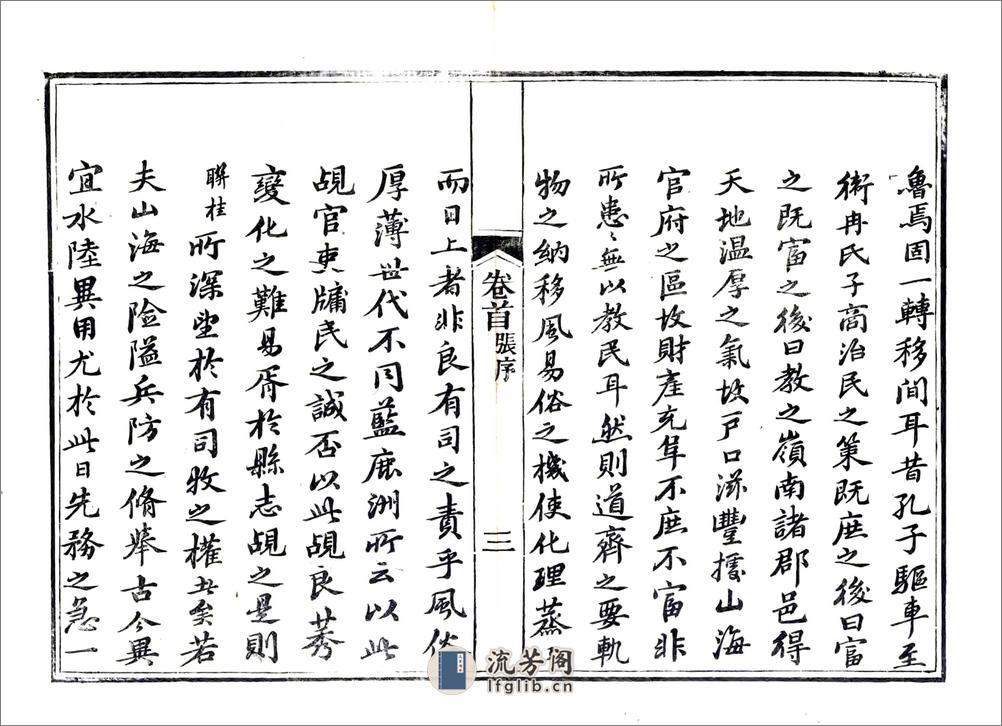 魯焉固一轉移間耳昔孔子驅車至
衛冉氏子商治民之策既庶之後曰富
之既富之後曰教之嶺南諸郡邑得
天地温厚之氣故戸口滋豐擅山海
官府之區故財產充阜不庶不富非
所患〻無以教民耳然則道齊之要軌
物之納移風易俗之機使化理蒸
卷首 張序 三
而日上者非良有司之責乎風俗
厚薄世代不同藍鹿洲所云以此
覘官吏牖民之誠否以此覘良莠
變化之難易胥於縣志覘之是則
聯桂所深望於有司牧之權者矣若
夫山海之險隘兵防之脩舉古今異
宜水陸異用尤於此日先務之急一
流芳阁
lfglib.cn